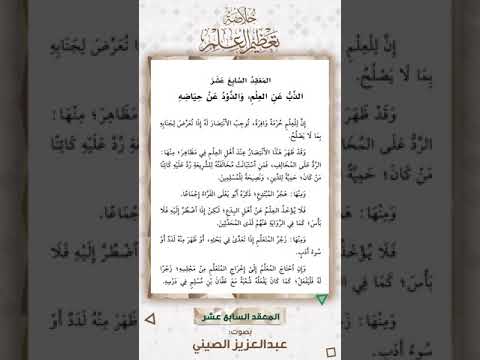 خلاصة
تعظيم العلم
المَعْقِدُ السَّابِعَ عَشَرَ
الذَّبُّ عَنِ العِلْمِ، وَالذَّوْدُ عَنْ حِيَاضِهِ
إِنَّ لِلْعِلْمِ حُرْمَةً وَافِرَةً، تُوجِبُ الاِنْتِصَارَ لَهُ إِذَا تُعُرِّضَ لِجَنَابِهِ
بِمَا لَا يَصْلُحُ.
وَقَدْ ظَهَرَ هَذَا الاِنْتِصَارُ عِنْدَ أَهْلِ العِلْمِ فِي مَظَاهِرَ؛ مِنْهَا:
الرَّدُّ عَلَى المُخَالِفِ، فَمَنِ اسْتَبَانَتْ مُخَالَفَتُهُ لِلشَّرِيعَةِ رُدَّ عَلَيْهِ كَائِنًا
مَنْ كَانَ؛ حَمِيَّةً لِلدِّينِ، وَنَصِيحَةً لِلْمُسْلِمِينَ.
وَمِنْهَا: هَجْرُ المُبْتَدِعِ؛ ذَكَرَهُ أَبُو يَعْلَى الفَرَّاءُ إِجْمَاعًا.
فَلَا يُؤْخَذُ العِلْمُ عَنْ أَهْلِ البِدَعِ؛ لَكِنْ إِذَا اضْطُرَّ إِلَيْهِ فَلَا
بَأْسَ؛ كَمَا فِي الرِّوَايَةِ عَنْهُمْ لَدَى المُحَدِّثِينَ.
وَمِنْهَا: زَجْرُ المُتَعَلِّمِ إِذَا تَعَدَّى فِي بَحْثِهِ، أَوْ ظَهَرَ مِنْهُ لَدَدٌ أَوْ
سُوءُ أَدَبٍ.
وَإِنِ احْتَاجَ المُعَلِّمُ إِلَى إِخْرَاجِ المُتَعَلِّمِ مِنْ مَجْلِسِهِ؛ زَجْرًا
لَهُ فَلْيَفْعَلْ؛ كَمَا كَانَ يَفْعَلُهُ شُعْبَةُ مَعَ عَفَّانَ بْنِ مُسْلِمٍ فِي دَرْسِهِ.
المعقد السابع عشر
بصوت:
عبدالعزيز الصيني